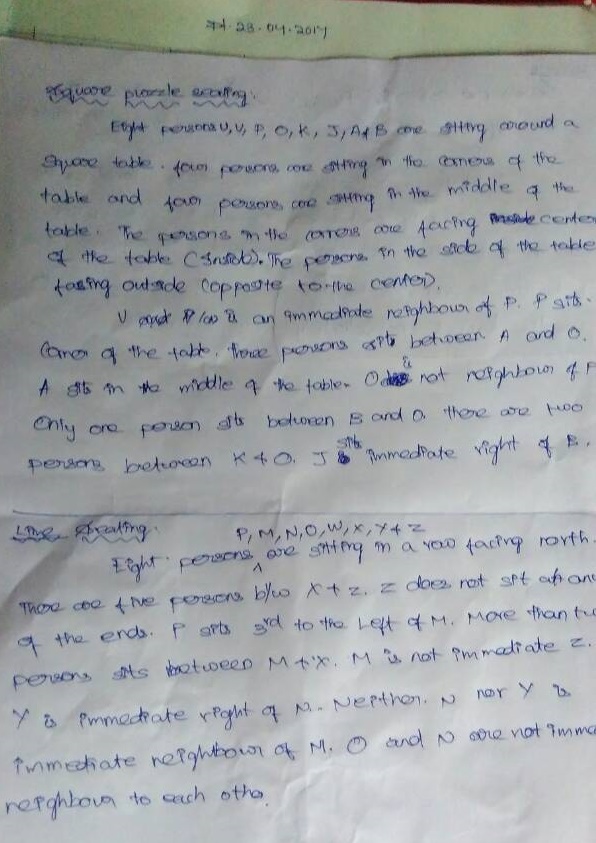 23.04.2017
Square puzzle seating.
Eight persons U, V, P, O, K, J, A & B are sitting around a
square table. four persons are sitting in the corners of the
table and four persons are sitting in the middle of the
table. The persons in the corners are facing center
of the table (Inside). The persons in the side of the table
facing outside (opposite to the center).
V is an immediate neighbour of P. P sits
corner of the table. three persons sits between A and O.
A sits in the middle of the table. O is not neighbour of P
Only one person sits between B and O. there are two
persons between K & O. J sits immediate right of B.
Line Seating.
P, M, N, O, W, X, Y & Z
Eight persons are sitting in a row facing north.
There are five persons b/w X & Z. Z does not sit any
of the ends. P sits 3rd to the left of M. More than
persons sits between M & X. M is not immediate Z.
Y is immediate right of N. Neither N nor Y is
immediate neighbour of M. O and N are not imme
neighbour to each othe.